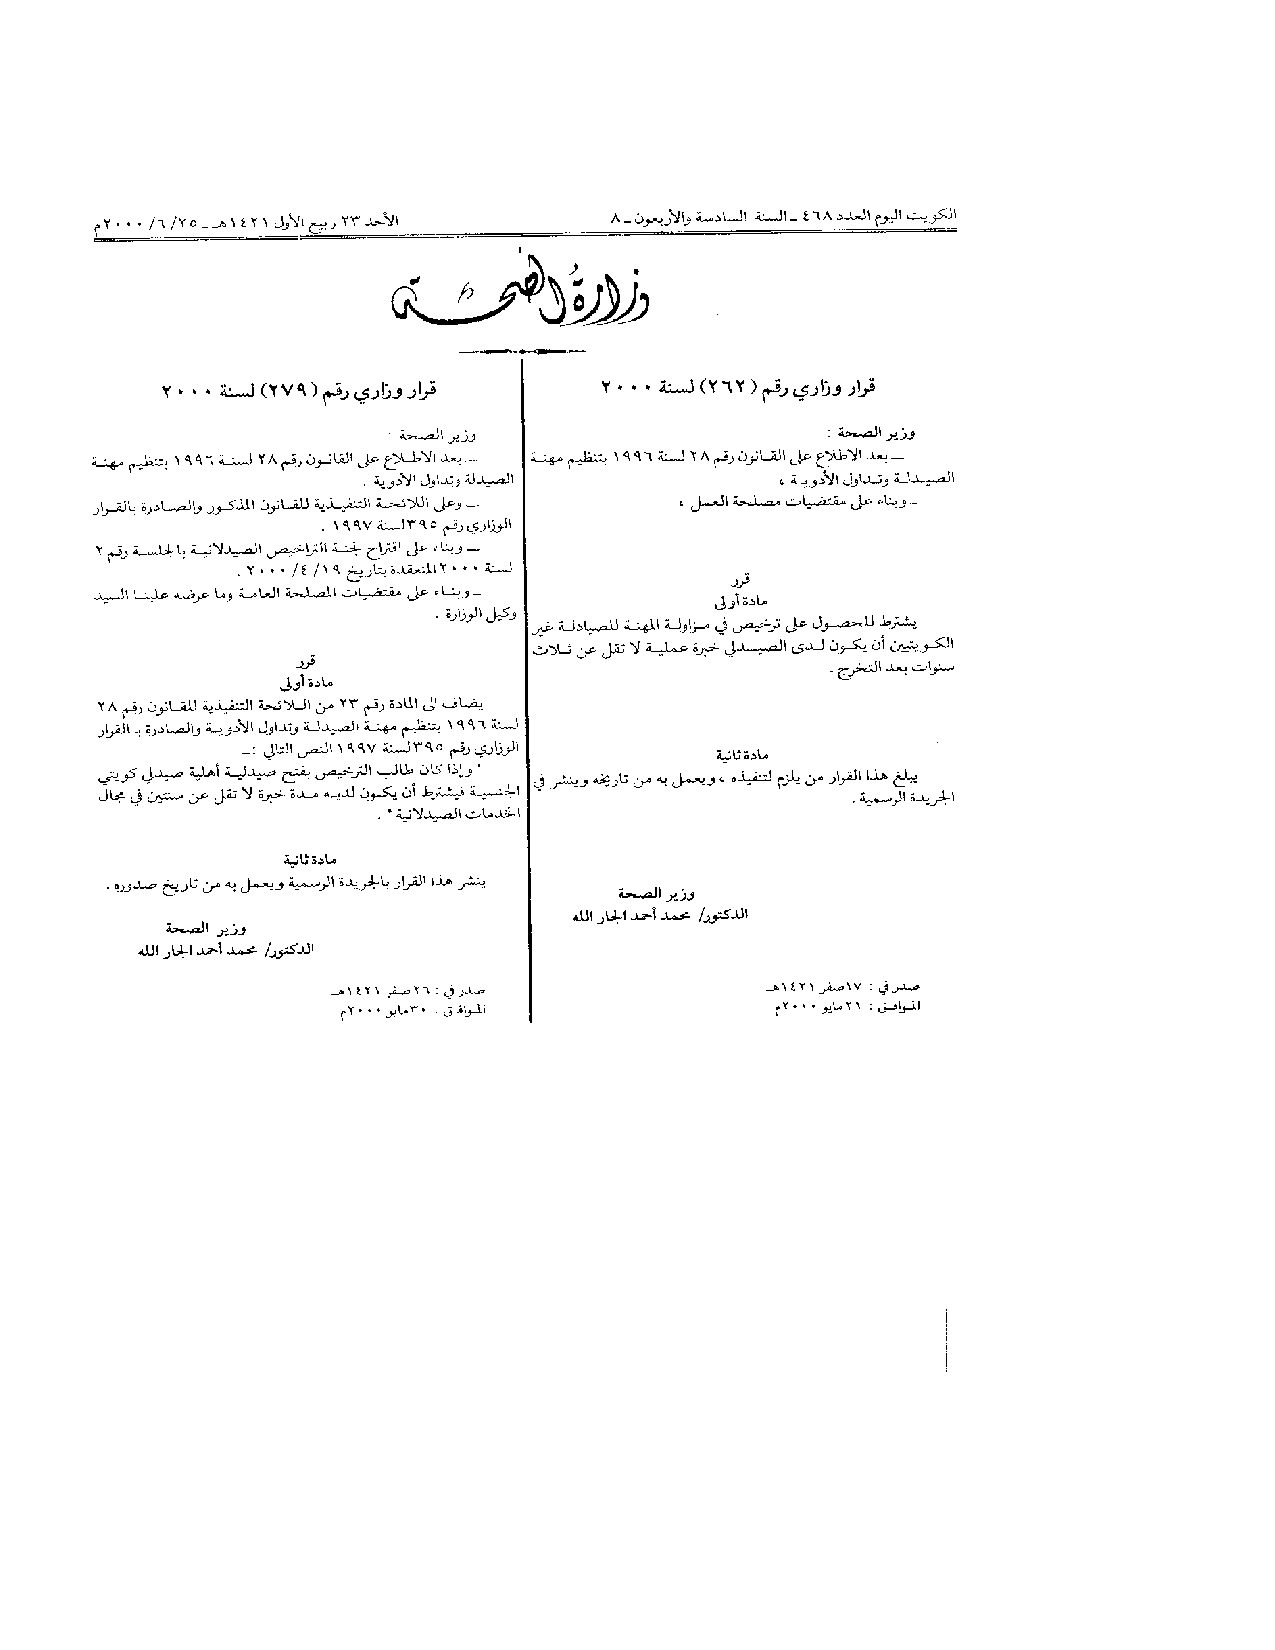 الكويت اليوم العدد ٤٦٨ ــ السنة السادسة والأربعون ــ ٨
الأحد ٢٣ ربيع الأول ١٤٢١هـ ــ ٢٥/ ٦/ ٢٠٠٠م
وزارة الصحة
قرار وزاري رقم (٢٦٢) لسنة ٢٠٠٠
وزير الصحة :
ــ بعد الاطلاع على القـانون رقم ٢٨ لسنة ١٩٩٦ بتنظيم مهنـة
الصيـدلـة وتـداول الأدويـة ،
ــ وبناء على مقتضيات مصلحة العمل ،
قرر
مادة أولى
يشترط للحصـول على ترخيص في مـزاولـة المهنـة للصيـادلـة غير
الكـويتيين أن يكـون لـدى الصيـدلي خبرة عمليـة لا تقل عن ثـلاث
سنوات بعد التخرج .
مادة ثانية
يبلغ هـذا القـرار من يلزم لتنفيذه ، ويعمل به من تاريخه وينشر في
الجريدة الرسمية .
وزير الصحة
الدكتور/ محمد أحمد الجار الله
صدر في : ١٧ صفر ١٤٢١هـ
الموافـق : ٢١ مايو ٢٠٠٠م
قرار وزاري رقم (٢٧٩) لسنة ٢٠٠٠
وزير الصحة :
ــ بعد الاطـلاع على القانـون رقم ٢٨ لسنـة ١٩٩٦ بتنظيم مهنـة
الصيدلة وتداول الأدوية .
ــ وعلى اللائحـة التنفيـذية للقـانون المذكـور والصـادرة بالقـرار
الوزاري رقم ٣٩٥ لسنة ١٩٩٧ .
ــ وبناء على اقتراح لجنـة التراخيص الصيدلانيـة بالجلسـة رقم ٢
لسنة ٢٠٠٠ المنعقدة بتاريخ ١٩/ ٤/ ٢٠٠٠ .
ــ وبنـاء على مقتضيـات المصلحـة العـامـة وما عرضه علينـا السيد
وكيل الوزارة .
قرر
مادة أولى
يضاف إلى المادة رقم ٢٣ من الـلائحة التنفيذية للقـانون رقم ٢٨
لسنة ١٩٩٦ بتنظيم مهنـة الصيدلـة وتداول الأدويـة والصادرة بـالقرار
الوزاري رقم ٣٩٥ لسنة ١٩٩٧ النص التالي :ــ
" وإذا كان طالب الترخيص بفتح صيدليـة أهلية صيدلي كويتي
الجنسيـة فيشترط أن يكون لديـه مـدة خبرة لا تقل عن سنتين في مجال
الخدمات الصيدلانية " .
مادة ثانية
ينشر هذا القرار بالجريدة الرسمية ويعمل به من تاريخ صدوره .
وزير الصحة
الدكتور/ محمد أحمد الجار الله
صدر في : ٢٦ صفر ١٤٢١هـ
الموافق : ٣٠ مايو ٢٠٠٠م